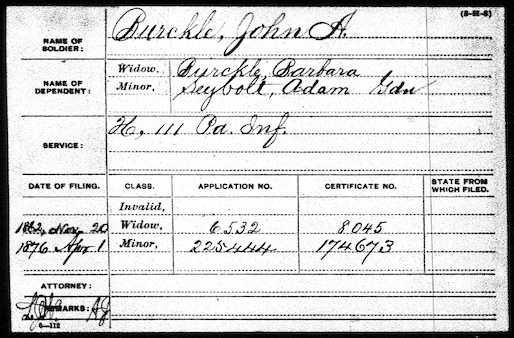 (3-III-8)
NAME OF SOLDIER: Burckle, John A.
NAME OF DEPENDENT: Widow, Burckle, Barbara
Minor, Seybolt, Adam Gdn
SERVICE: H, 111 Pa. Inf.
DATE OF FILING. CLASS. APPLICATION NO. CERTIFICATE NO. STATE FROM WHICH FILED.
Invalid,
1862, Nov. 20 Widow, 6532 8045
1876 Apr. 1 Minor, 225444 174673
ATTORNEY:
REMARKS:
6—112